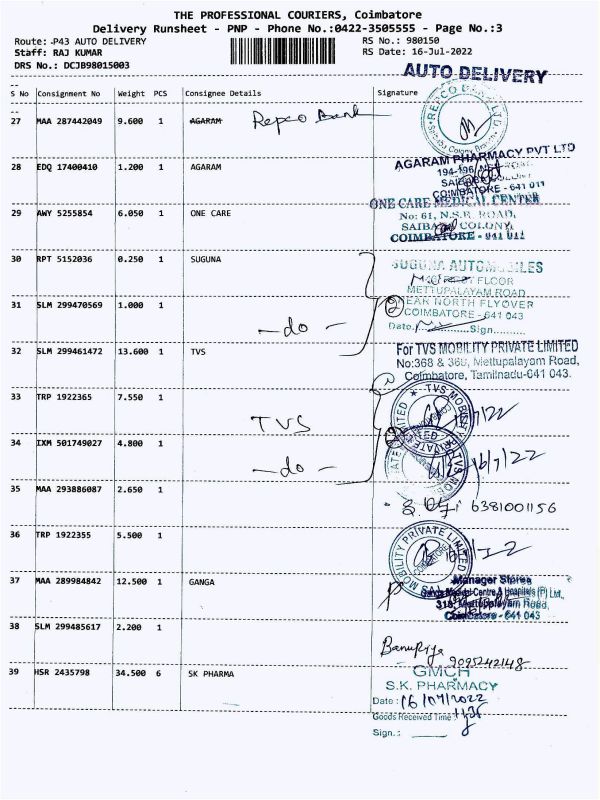 THE PROFESSIONAL COURIERS, Coimbatore
Delivery Runsheet - PNP - Phone No.:0422-3505555 - Page No.:3
Route: P43 AUTO DELIVERY RS No.: 980150
Staff: RAJ KUMAR RS Date: 16-Jul-2022
DRS No.: DCJB98015003
AUTO DELIVERY
S No Consignment No Weight PCS Consignee Details Signature
27 MAA 287442049 9.600 1 AGARAM Repco Bank
REPCO
28 EDQ 17400410 1.200 1 AGARAM
AGARAM PHARMACY PVT LTD
194-196
COIMBATORE - 641 011
29 AWY 5255854 6.050 1 ONE CARE
ONE CARE MEDICAL CENTER
No: 61, N.S.R. ROAD,
SAIBABA COLONY,
COIMBATORE - 641 011
30 RPT 5152036 0.250 1 SUGUNA
SUGUNA AUTOMOBILES
FLOOR
METTUPALAYAM ROAD
NEAR NORTH FLYOVER
COIMBATORE - 641 043
Date. Sign.
31 SLM 299470569 1.000 1 -do-
2
32 SLM 299461472 13.600 1 TVS
For TVS MOBILITY PRIVATE LIMITED
No:368 & 368, Mettupalayam Road,
Coimbatore, Tamilnadu-641 043.
33 TRP 1922365 7.550 1 TVS
TVS MOBILITY PRIVATE LIMITED
34 IXM 501749027 4.800 1 -do-
16/7/22
35 MAA 293886087 2.650 1
6381001156
36 TRP 1922355 5.500 1
MOBILITY PRIVATE LIMITED
COIMBATORE
37 MAA 289984842 12.500 1 GANGA
Manager Stores
Ganga Medical Centre & Hospitals (P) Ltd.,
313, Mettuppalayam Road,
Coimbatore - 641 043
38 SLM 299485617 2.200 1
Banupriya
9095242148
39 HSR 2435798 34.500 6 SK PHARMA
GMCH
S.K. PHARMACY
Date : 16/07/2022
Goods Received Time :
Sign. :